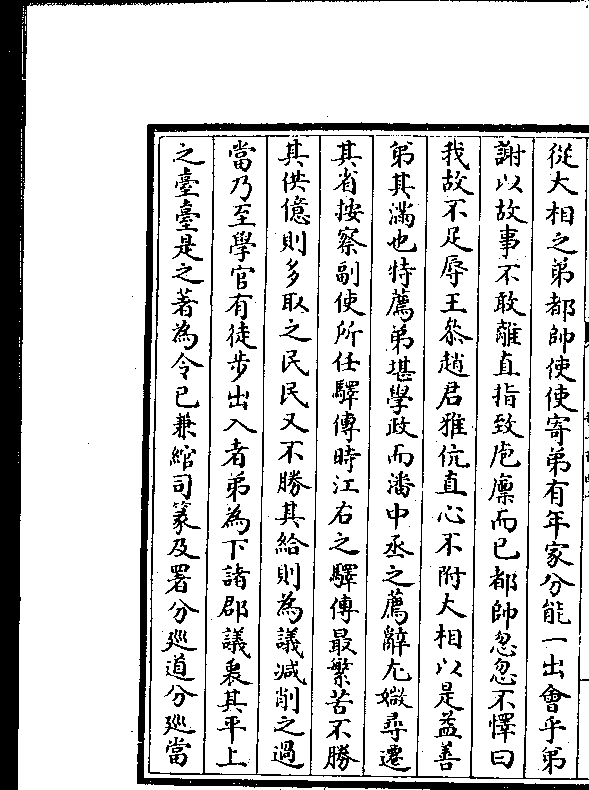 從大相之弟都帥使使寄弟有年家分能一出會乎弟
謝以故事不敢離直指致庖廩而已都帥忽忽不懌曰
我故不足辱王叅趙君雅伉直心不附大相以是益善
弟其滿也特薦弟堪學政而潘中丞之薦辭尤媺尋遷
其省按察副使所任驛傳時江右之驛傳最繁苦不勝
其供億則多取之民民又不勝其給則為議減削之過
當乃至學官有徒步出入者弟為下諸郡議裒其平上
之臺臺是之著為令已兼綰司篆及署分廵道分廵當